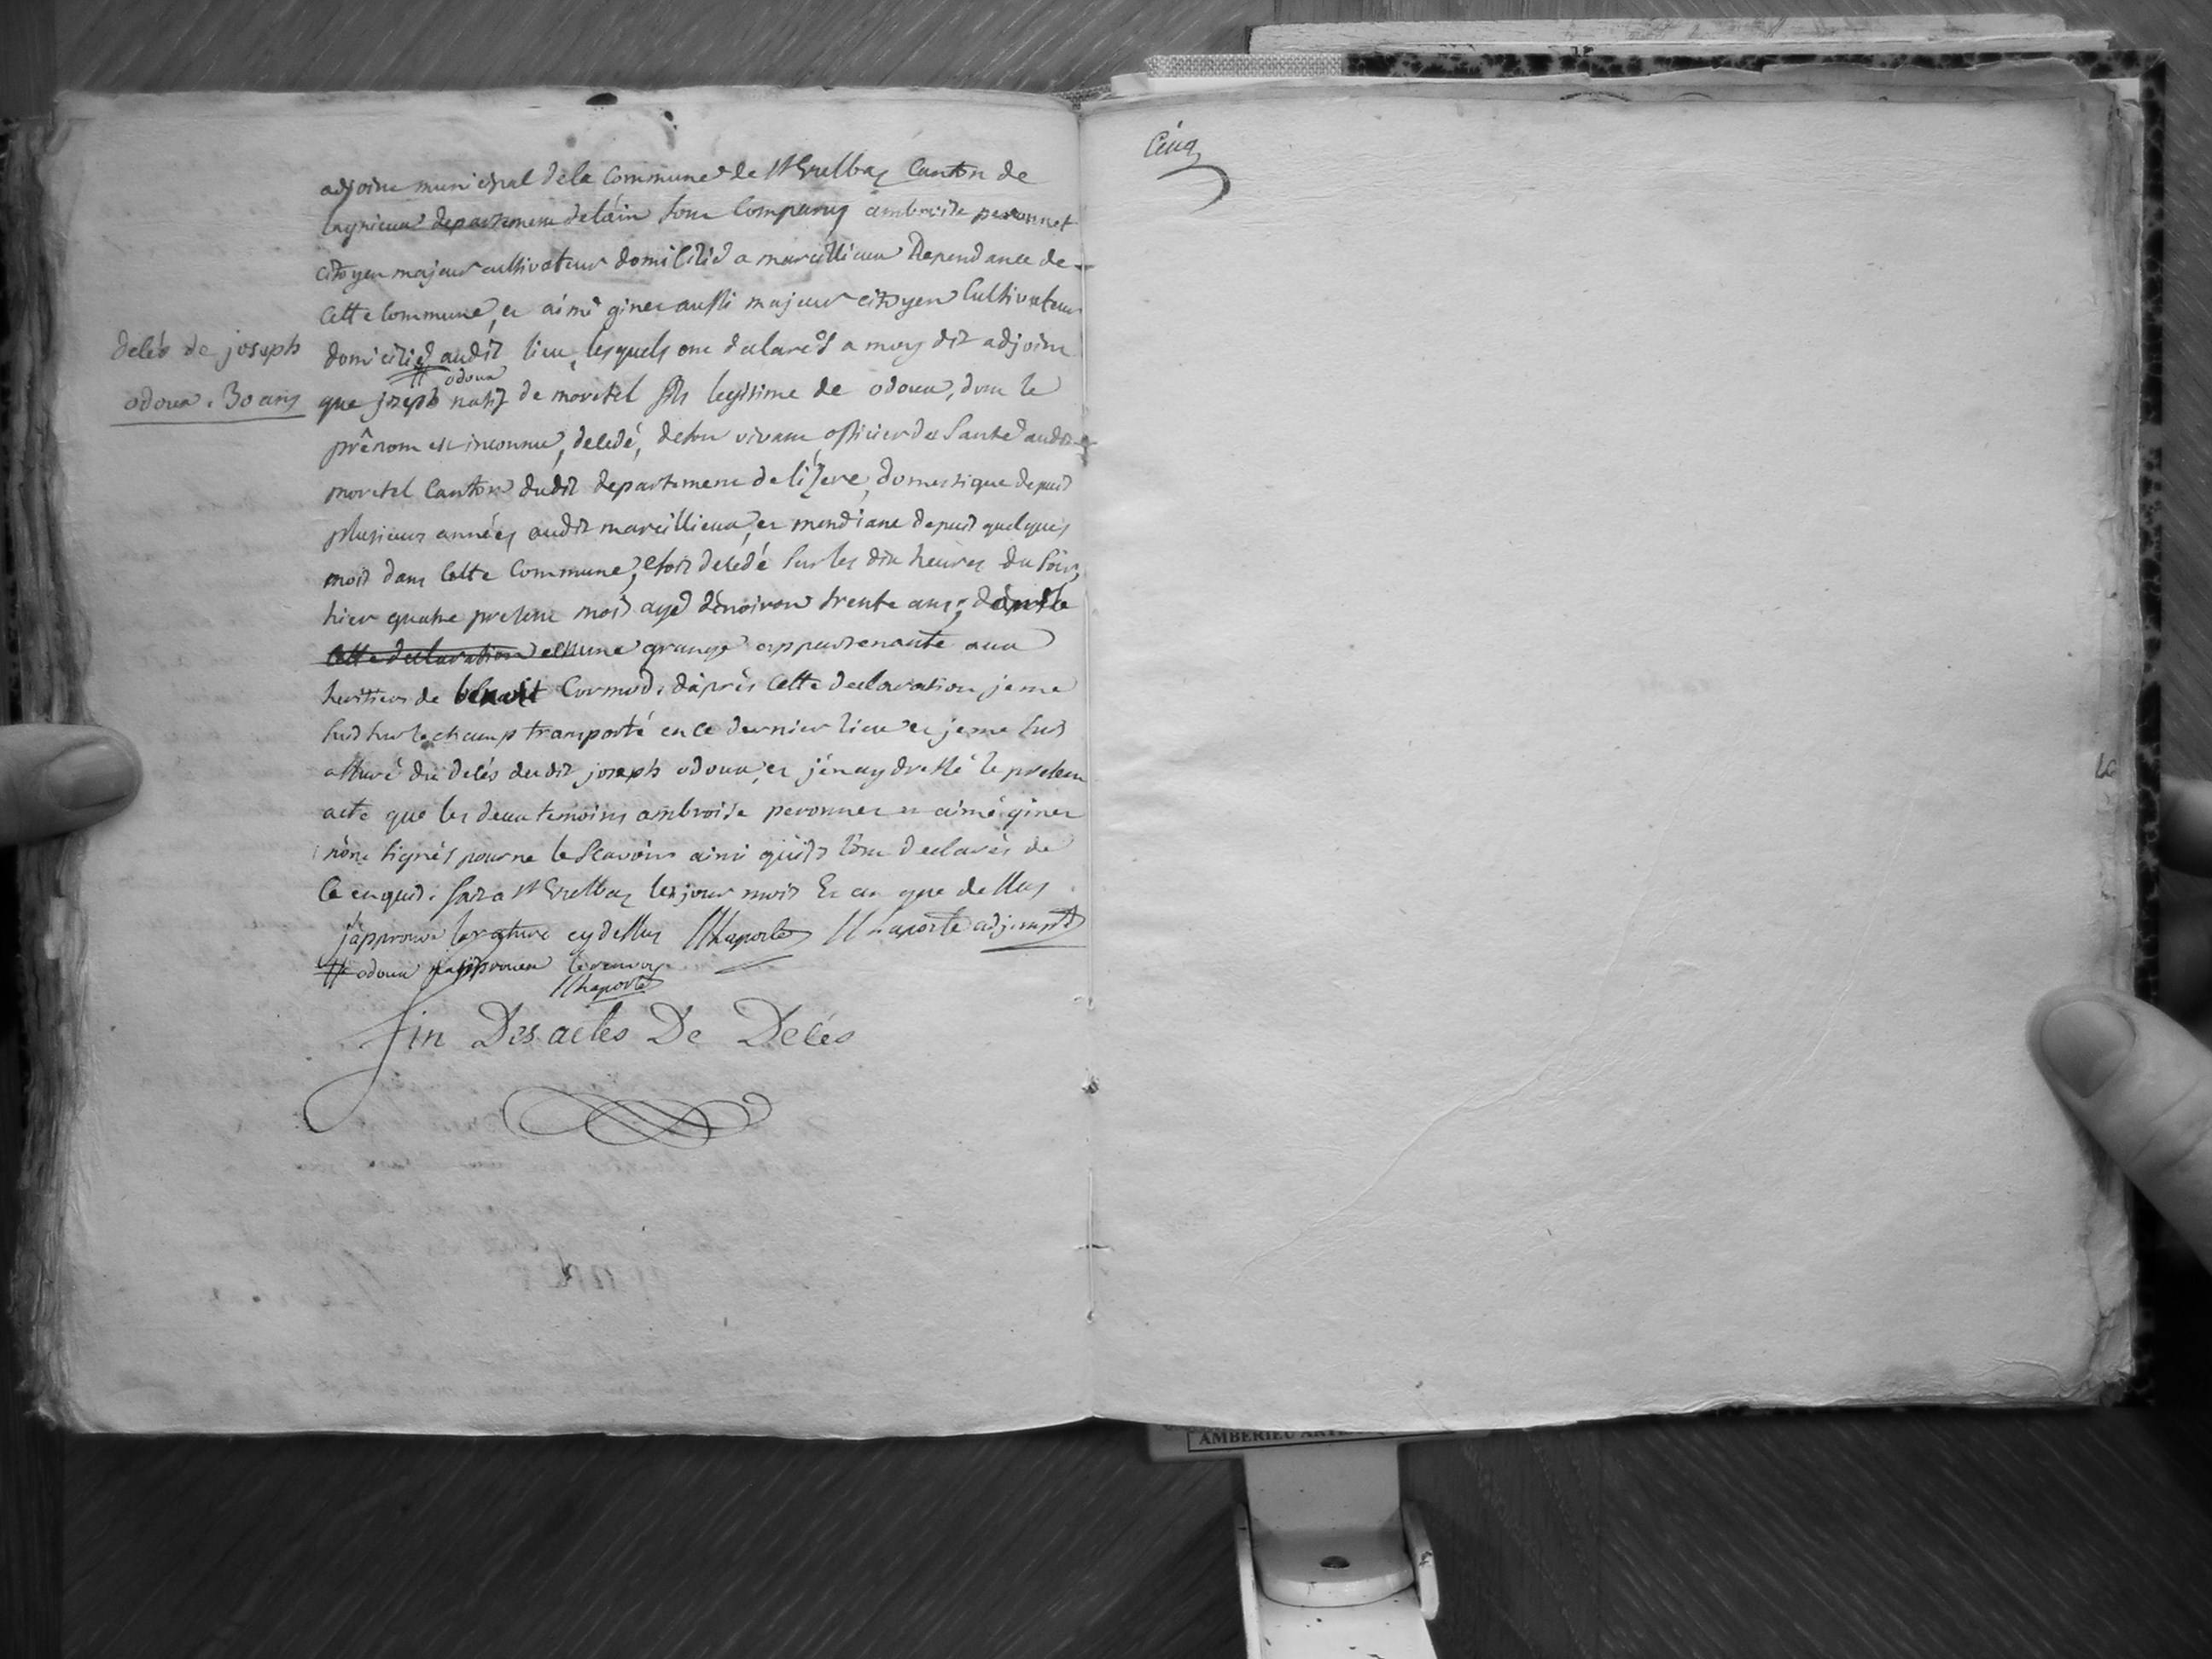 adjoint municipal de la Commune de St Vuelbaz Canton de
lagnieux departement de láin sont Comparuy ambroise peronnet
citoyen majeur cultivateur domicilié a marcillieux Dependance de
cette Commune, et aimé ginet aussi majeur citoyen Cultivateur
domicilié audit lieu, lesquels ont declarés a moy dit adjoint
decés de joseph
odoux. 30 ans
# odoux
que joseph natif de morestel fils legitime de odoux, dont le
prênom est inconnu, decedé, de son vivant officier de Santé audit
morestel Canton dudit departement de lizere, domestique depuis
plusieurs années audit marcillieux, et mendiant depuis quelques
mois dans Cette Commune, etoit decedé sur les dix heures du soir,
hier quatre present mois agé dénviron trente ans,
cette declaration une grange appartenante aux
heritiers de benoit Cormod. dáprès Cette declaration je me
suis sur le champ transporté en ce dernier lieu et je me suis
assuré du decés dudit joseph odoux, et jén ay dressé le present
acte que les deux temoins ambroise peronnet et aimé ginet
nónt signés pour ne le Scavoir ainsi quils lónt declarés de
Ce enquis. fait a St Vuelbaz les jour mois Et an que dessus
jápprouve la rature cy dessus Laporte Laporte adjoint
# odoux japprouve le renvoy
Laporte
Fin Des actes De Decés
Cinq